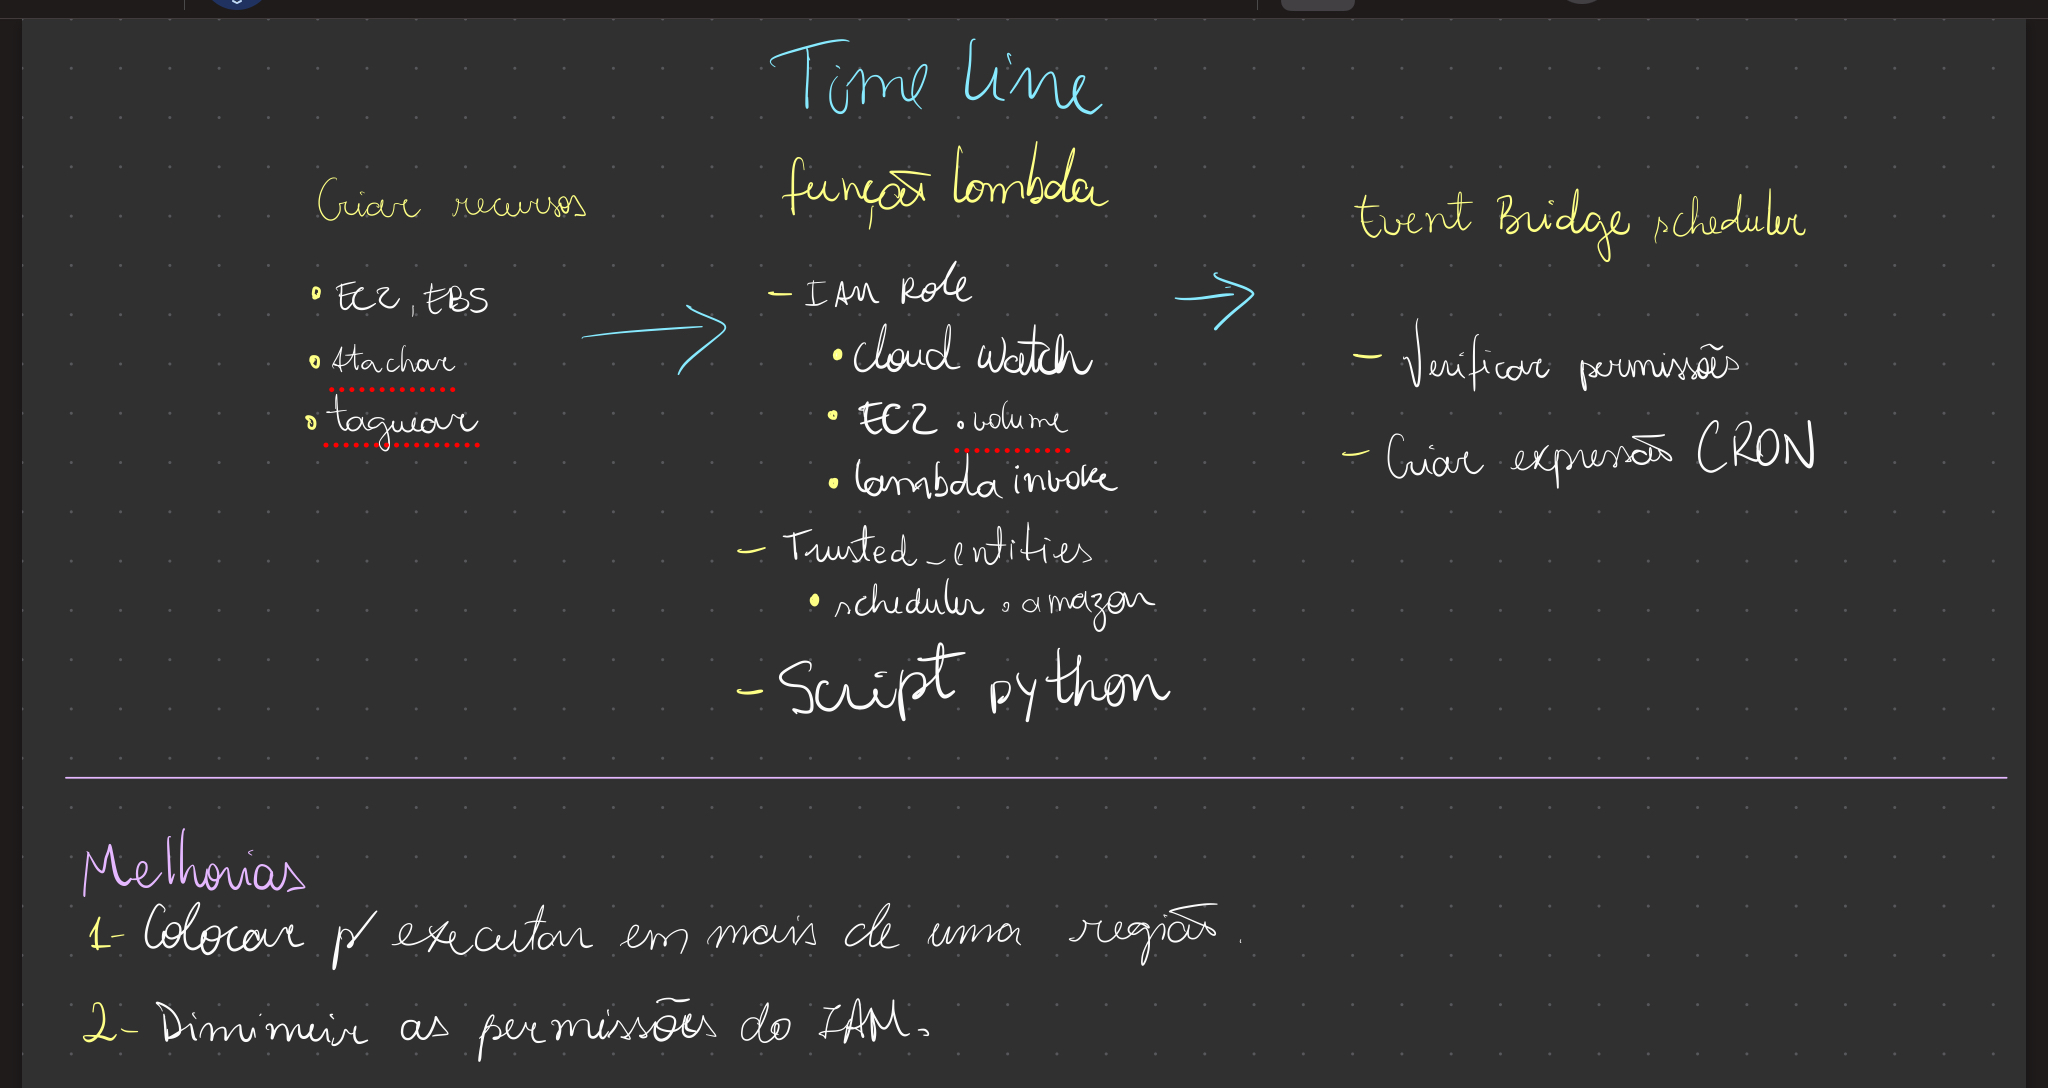 Time line
Criar recursos
• EC2, EBS
• Atachar
• taguear
função lambda
- IAM Role
• Cloud Watch
• EC2 .volume
• lambda invoke
- Trusted_entities
• scheduler.amazon
- Script python
Event Bridge scheduler
- Verificar permissões
- Criar expressão CRON
Melhorias
1- Colocar p/ executar em mais de uma região.
2- Diminuir as permissões do IAM.